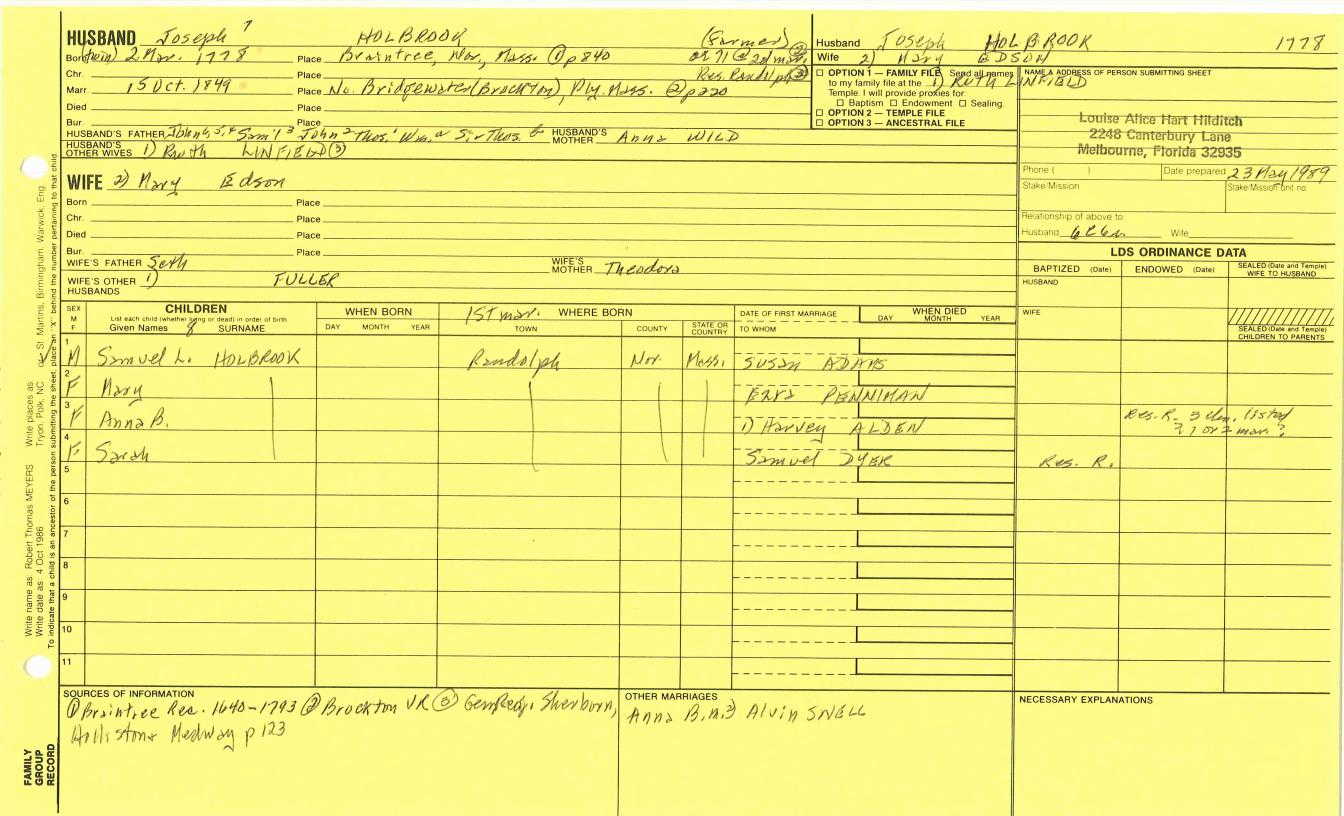 HUSBAND Joseph 7 HOLBROOK (Farmer)
Born (twin) 2 Mar. 1778 Place Braintree, Nor, Mass. ① p 840 or 71 @ 2d mar. ②
Chr. Place Res. Randolph ③
Marr 15 Oct. 1849 Place No. Bridgewater (Brockton), Ply. Mass. ② p 220
Died Place
Bur Place
HUSBAND'S FATHER John 6, 5, 4 Sam'l 3 John 2 Thos. 1 Wm. a Sir Thos. b HUSBAND'S MOTHER Anna WILD
HUSBAND'S OTHER WIVES 1) Ruth LINFIELD ③
WIFE 2) Mary Edson
Born Place
Chr. Place
Died Place
Bur. Place
WIFE'S FATHER Seth WIFE'S MOTHER Theodora
WIFE'S OTHER HUSBANDS 1) FULLER
Husband Joseph HOLBROOK 1778
Wife 2) Mary EDSON
1) RUTH LINFIELD
☐ OPTION 1 — FAMILY FILE Send all names
to my family file at the
Temple. I will provide proxies for:
☐ Baptism ☐ Endowment ☐ Sealing.
☐ OPTION 2 — TEMPLE FILE
☐ OPTION 3 — ANCESTRAL FILE
NAME & ADDRESS OF PERSON SUBMITTING SHEET
Louise Alice Hart Hilditch
2248 Canterbury Lane
Melbourne, Florida 32935
Phone ( ) Date prepared 23 May 1989
Stake/Mission Stake/Mission unit no.
Relationship of above to:
Husband 6C6R Wife
LDS ORDINANCE DATA
BAPTIZED (Date) ENDOWED (Date) SEALED (Date and Temple) WIFE TO HUSBAND
HUSBAND
WIFE
SEALED (Date and Temple) CHILDREN TO PARENTS
SEX M F CHILDREN WHEN BORN 1st mar. WHERE BORN DATE OF FIRST MARRIAGE WHEN DIED
List each child (whether living or dead) in order of birth
Given Names 8 SURNAME DAY MONTH YEAR TOWN COUNTY STATE OR COUNTRY TO WHOM DAY MONTH YEAR
1 M Samuel L. HOLBROOK Randolph Nor. Mass. SUSAN ADAMS
2 F Mary EZRA PENNIMAN
3 F Anna B. 1) Harvey ALDEN Res. R. 3 chn. listed
? 1 or 2 mar.?
4 F Sarah Samuel DYER Res. R.
5
6
7
8
9
10
11
SOURCES OF INFORMATION
① Braintree Rec. 1640-1793 ② Brockton VR ③ Gen. Reg. Sherborn,
Holliston & Medway p 123
OTHER MARRIAGES
Anna B. m. 2) Alvin SNELL
NECESSARY EXPLANATIONS
Write name as Robert Thomas MEYERS Write places as Tryon, Polk, NC or St. Martins, Birmingham, Warwick, Eng.
Write date as 4 Oct 1986
To indicate that a child is an ancestor of the person submitting the sheet, place an "X" behind the number pertaining to that child
FAMILY
GROUP
RECORD